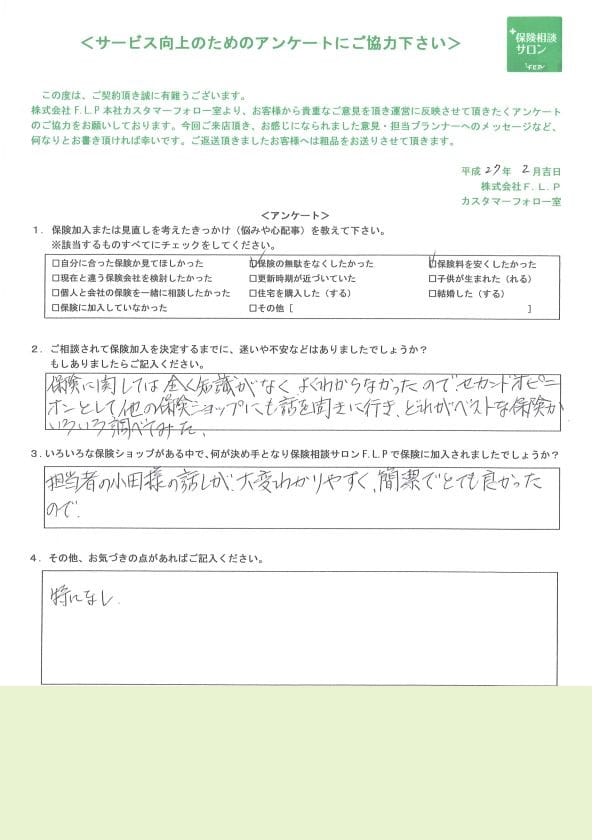 ＜サービス向上のためのアンケートにご協力下さい＞
保険相談
サロン
F.L.P
この度は、ご契約頂き誠に有難うございます。
株式会社F.L.P本社カスタマーフォロー室より、お客様から貴重なご意見を頂き運営に反映させて頂きたくアンケート
のご協力をお願いしております。今回ご来店頂き、お感じになられました意見・担当プランナーへのメッセージなど、
何なりとお書き頂ければ幸いです。ご返送頂きましたお客様へは粗品をお送りさせて頂きます。
平成27年 2月吉日
株式会社F.L.P
カスタマーフォロー室
＜アンケート＞
1．保険加入または見直しを考えたきっかけ（悩みや心配事）を教えて下さい。
※該当するものすべてにチェックをしてください。
□自分に合った保険か見てほしかった ☑保険の無駄をなくしたかった ☑保険料を安くしたかった
□現在と違う保険会社を検討したかった □更新時期が近づいていた □子供が生まれた（れる）
□個人と会社の保険を一緒に相談したかった □住宅を購入した（する） □結婚した（する）
□保険に加入していなかった □その他［ ］
2．ご相談されて保険加入を決定するまでに、迷いや不安などはありましたでしょうか？
もしありましたらご記入ください。
保険に関しては全く知識がなくよくわからなかったので、セカンドオピニ
オンとして他の保険ショップにも話を聞きに行き、どれがベストな保険か
いろいろ調べてみた。
3．いろいろな保険ショップがある中で、何が決め手となり保険相談サロンF.L.Pで保険に加入されましたでしょうか？
担当者の小田様の話しが、大変わかりやすく、簡潔でとても良かった
ので。
4．その他、お気づきの点があればご記入ください。
特になし。